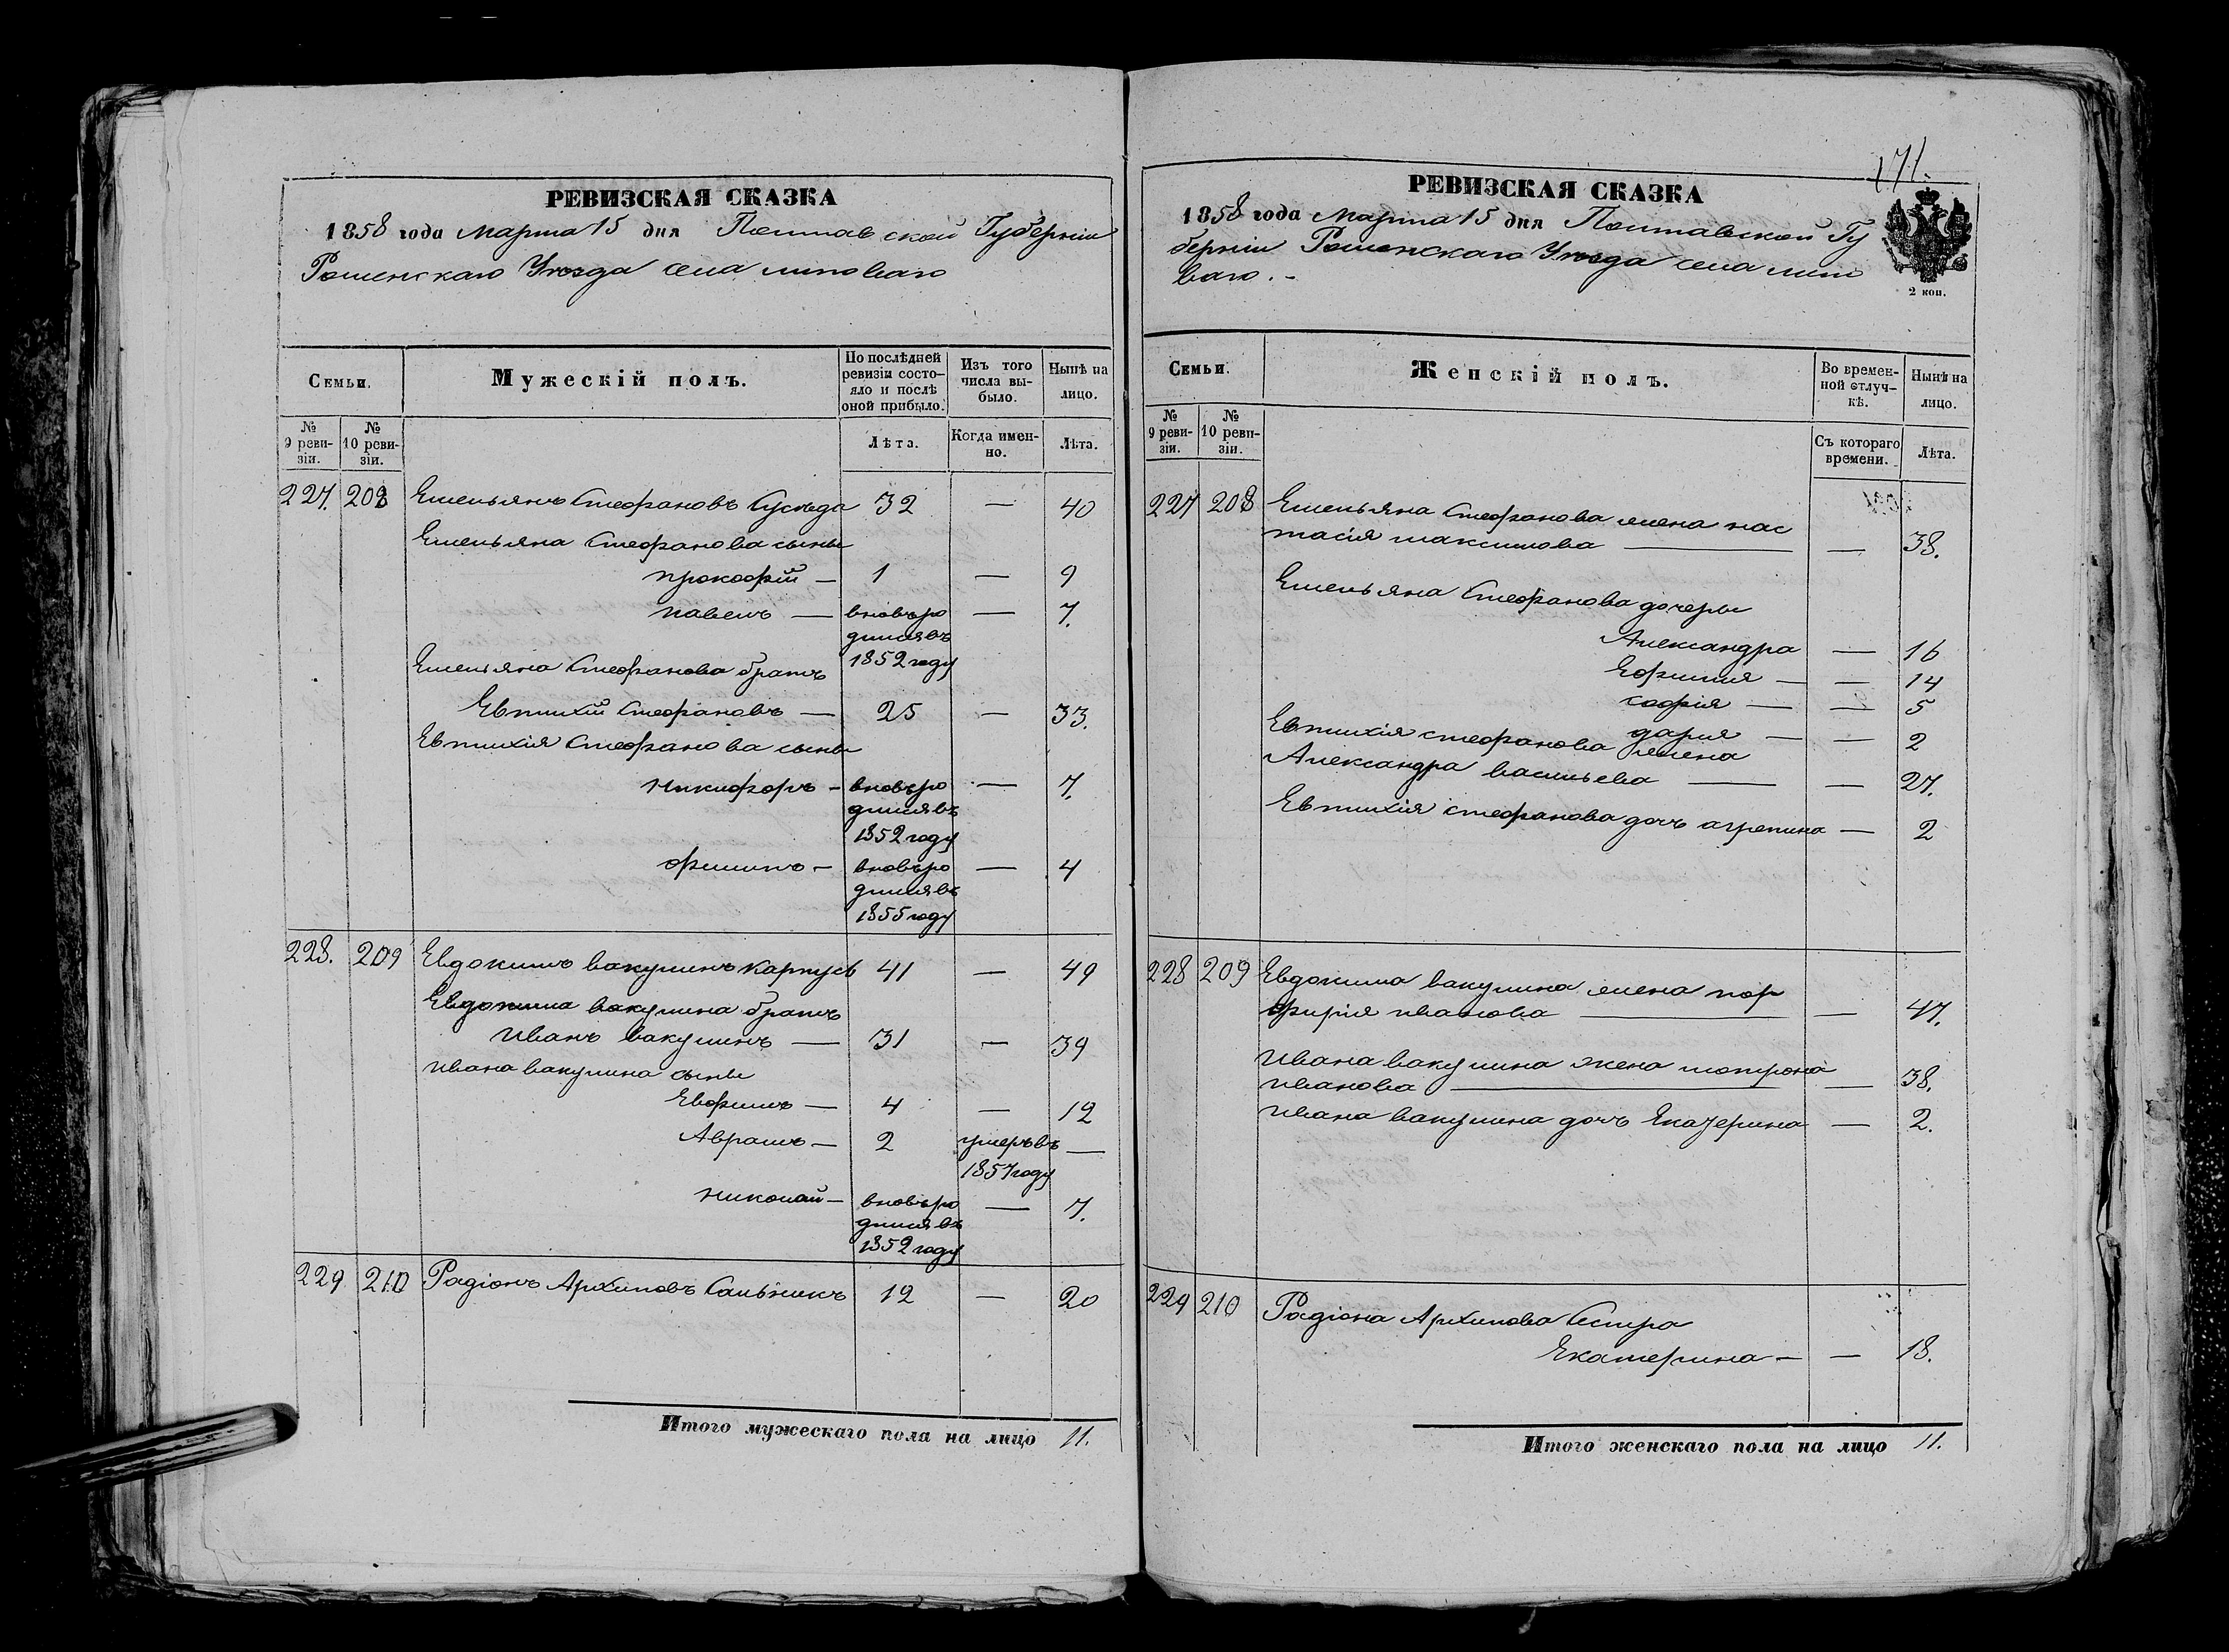 РЕВИЗСКАЯ СКАЗКА
1858 года Марта 15 дня Полтавской Губерніи
Роменскаго Уѣзда села липоваго
Семьи.
Мужескій полъ.
По послѣдней ревизіи состояло и послѣ оной прибыло.
Изъ того числа выбыло.
Нынѣ на лицо.
№ 9 ревизіи.
№ 10 ревизіи.
Лѣта.
Когда именно.
Лѣта.
227. 208 Емельянъ Стефановъ 32 — 40
Емельяна Стефанова сыны
прокофій — 1 — 9
павелъ — вновьро — 7.
дился въ
1852 году
Емельяна Стефанова братъ
Евтихій Стефановъ — 25 — 33.
Евтихія Стефанова сыны
никифоръ — вновьро — 7.
дился въ
1852 году
филипъ — вновьро — 4
дился въ
1855 году
228. 209 Евдокимъ вакулинъ карпусь 41 — 49
Евдокима вакулина братъ
Иванъ вакулинъ — 31 — 39
ивана вакулина сыны
Евфимъ — 4 — 12
Аврамъ — 2 умеръ въ —
1857 году
николай — вновьро — 7.
дился въ
1852 году
229 210 Радіонъ Архиповъ Сальникъ 12 — 20
Итого мужескаго пола на лицо 11.
171.
РЕВИЗСКАЯ СКАЗКА
1858 года марта 15 дня Полтавской Гу
берніи Роменскаго Уѣзда села липо
ваго. -
2 коп.
Семьи.
Женскій полъ.
Во временной отлучкѣ.
Нынѣ на лицо.
№ 9 ревизіи.
№ 10 ревизіи.
Съ котораго времени.
Лѣта.
227 208 Емельяна Стефанова жена нас
тасія максимова — — 38.
Емельяна Стефанова дочеры
Александра — 16
Ефимия — — 14
софія — — 5
дарія — — 2
Евтихія стефанова жена
Александра васильева — — 27.
Евтихія стефанова дочь агрепина — 2
228 209 Евдокима вакулина жена пор
фирія иванова — — 47.
ивана вакулина жена мотрона
иванова — — 38.
ивана вакулина дочь Екатерина — 2.
229 210 Радіона Архипова Сестра
Екатерина — — 18.
Итого женскаго пола на лицо 11.